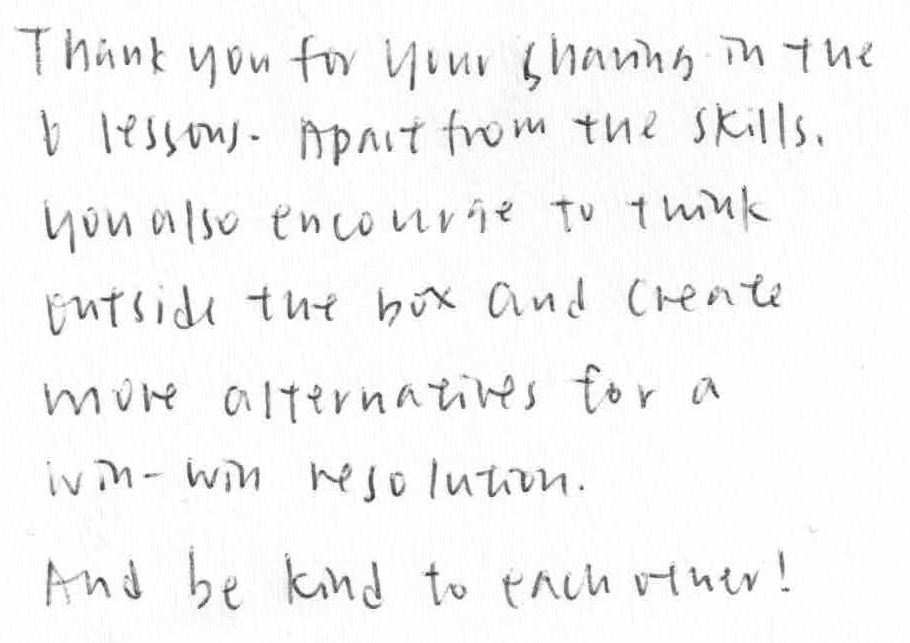 Thank you for your sharing in the
6 lessons. Apart from the skills,
you also encourge to think
outside the box and create
more alternatives for a
win-win resolution.
And be kind to each other!